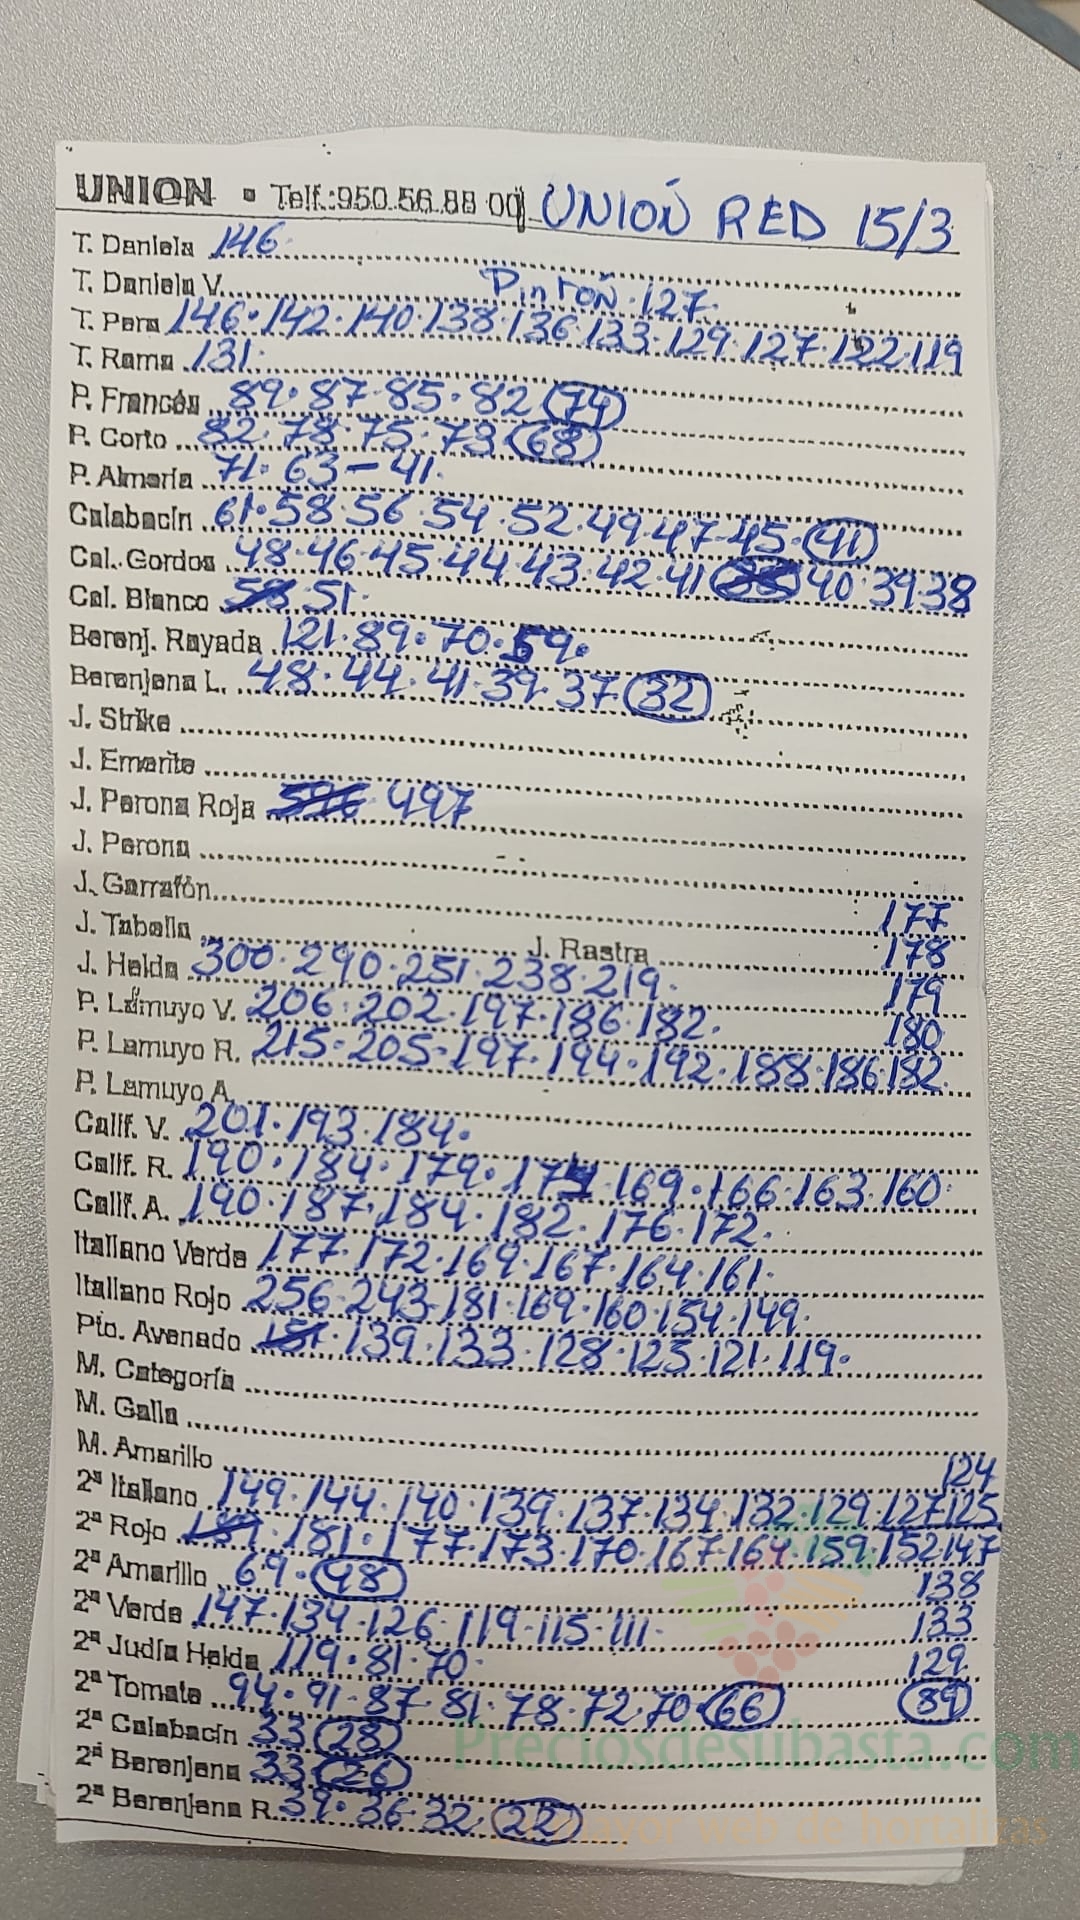 UNION • Telf.:950.56.88 00 UNIÓN RED 15/3
T. Daniela 146.
T. Daniela V. Pintón.127.
T. Pera 146.142.140.138.136.133.129.127.122.119
T. Rama 131.
P. Francés 89.87.85.82 (74)
P. Corto 82.78.75.73 (68)
P. Almería 71.63-41.
Calabacín 61.58.56.54.52.49.47.45.(41)
Cal. Gordos 48.46.45.44.43.42.41 40.39.38
Cal. Blanco 51.
Berenj. Rayada 121.89.70.59.
Berenjena L. 48.44.41.39.37.(32)
J. Strike
J. Emerite
J. Perona Roja 497
J. Perona
J. Garrafón
177
J. Tabella J. Rastra 178
J. Helda 300.290.251.238.219. 179
P. Lamuyo V. 206.202.197.186.182. 180
P. Lamuyo R. 215.205.197.194.192.188.186.182.
P. Lamuyo A.
Calif. V. 201.193.184.
Calif. R. 190.184.179.174.169.166.163.160
Calif. A. 190.187.184.182.176.172.
Italiano Verde 177.172.169.167.164.161.
Italiano Rojo 256.243.181.169.160.154.149.
Pto. Asado 139.133.128.123.121.119.
M. Categoría
M. Galia
M. Amarillo 124
2ª Italiano 149.144.140.139.137.134.132.129.127.125
2ª Rojo 181.177.173.170.167.164.159.152.147
2ª Amarillo 69.(48) 138
2ª Verde 147.134.126.119.115.111. 133
2ª Judía Helda 119.81.70. 129
2ª Tomate 94.91.87.81.78.72.70.(66) (89)
2ª Calabacín 33 (28)
2ª Berenjena 33 (26)
2ª Berenjena R. 39.36.32.(22)
Preciosdesubasta.com
mayor web de hortalizas